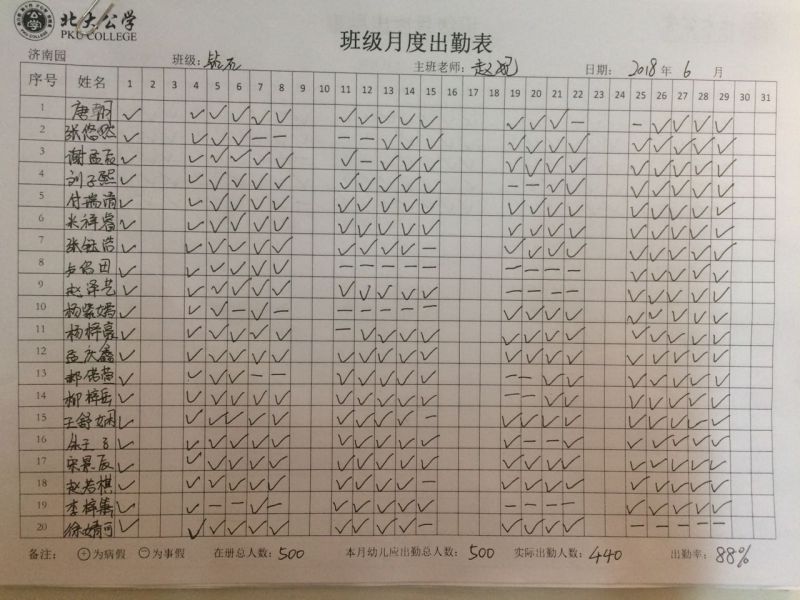 北大公学
PKU COLLEGE
班级月度出勤表
济南园 班级: 钻石 主班老师: 赵 日期: 2018 年 6 月
序号 姓名 1 2 3 4 5 6 7 8 9 10 11 12 13 14 15 16 17 18 19 20 21 22 23 24 25 26 27 28 29 30 31
1 唐朝 ✓ ✓ ✓ ✓ ✓ ✓ ✓ ✓ ✓ ✓ ✓ ✓ ✓ ✓ — — ✓ ✓ ✓ ✓
2 张悠然 ✓ ✓ ✓ ✓ — — — — ✓ ✓ ✓ ✓ ✓ ✓ ✓ ✓ ✓ ✓ ✓ ✓
3 谢孟辰 ✓ ✓ ✓ ✓ ✓ ✓ ✓ — ✓ ✓ ✓ ✓ ✓ ✓ ✓ ✓ ✓ ✓ ✓ ✓
4 刘子熙 ✓ ✓ ✓ ✓ ✓ ✓ ✓ ✓ ✓ ✓ ✓ — — ✓ ✓ ✓ ✓ ✓ ✓ ✓
5 付瑞清 ✓ ✓ ✓ ✓ ✓ ✓ ✓ ✓ ✓ ✓ ✓ ✓ ✓ ✓ ✓ ✓ ✓ ✓ ✓ ✓
6 米梓睿 ✓ ✓ ✓ ✓ ✓ ✓ ✓ ✓ ✓ ✓ ✓ ✓ ✓ ✓ ✓ ✓ ✓ ✓ ✓ ✓
7 张钰浩 ✓ ✓ ✓ ✓ ✓ ✓ ✓ ✓ ✓ ✓ — ✓ ✓ ✓ ✓ ✓ ✓ ✓ ✓ ✓
8 ✓ ✓ ✓ ✓ ✓ ✓ — — — — — — — — — ✓ ✓ ✓ ✓ ✓
9 赵泽艺 ✓ ✓ ✓ ✓ ✓ ✓ ✓ ✓ ✓ ✓ ✓ — — — — ✓ ✓ ✓ ✓ ✓
10 杨紫嫣 ✓ ✓ ✓ — ✓ — — — — — — ✓ ✓ ✓ ✓ ✓ ✓ ✓ ✓ ✓
11 杨梓豪 ✓ ✓ ✓ ✓ ✓ ✓ — ✓ ✓ ✓ ✓ ✓ ✓ ✓ ✓ ✓ ✓ ✓ ✓ ✓
12 孟庆鑫 ✓ ✓ ✓ ✓ ✓ ✓ ✓ ✓ ✓ ✓ ✓ ✓ ✓ ✓ ✓ ✓ ✓ ✓ ✓ ✓
13 ✓ ✓ ✓ ✓ — — ✓ ✓ ✓ ✓ ✓ — — ✓ ✓ ✓ ✓ ✓ ✓ ✓
14 柳梓岳 ✓ ✓ ✓ ✓ ✓ ✓ ✓ ✓ ✓ ✓ ✓ — — ✓ ✓ ✓ ✓ ✓ ✓ ✓
15 王舒娴 ✓ ✓ ✓ ✓ ✓ ✓ ✓ ✓ ✓ ✓ — ✓ ✓ ✓ ✓ ✓ ✓ ✓ ✓ ✓
16 ✓ ✓ ✓ ✓ ✓ ✓ ✓ ✓ ✓ ✓ ✓ ✓ — — ✓ ✓ ✓ ✓ ✓ ✓
17 宋景辰 ✓ ✓ ✓ ✓ ✓ ✓ ✓ ✓ ✓ ✓ ✓ ✓ ✓ ✓ ✓ ✓ ✓ ✓ ✓ ✓
18 赵若棋 ✓ ✓ ✓ ✓ ✓ ✓ ✓ ✓ ✓ ✓ — ✓ ✓ ✓ ✓ ✓ ✓ ✓ ✓ ✓
19 李梓 ✓ ✓ — — ✓ — ✓ ✓ ✓ ✓ ✓ — — — — ✓ ✓ ✓ ✓ ✓
20 徐婧可 ✓ ✓ ✓ ✓ ✓ ✓ ✓ ✓ ✓ ✓ — ✓ ✓ ✓ ✓ — — — — —
备注: ⊕为病假 ⊖为事假 在册总人数: 500 本月幼儿应出勤总人数: 500 实际出勤人数: 440 出勤率: 88%